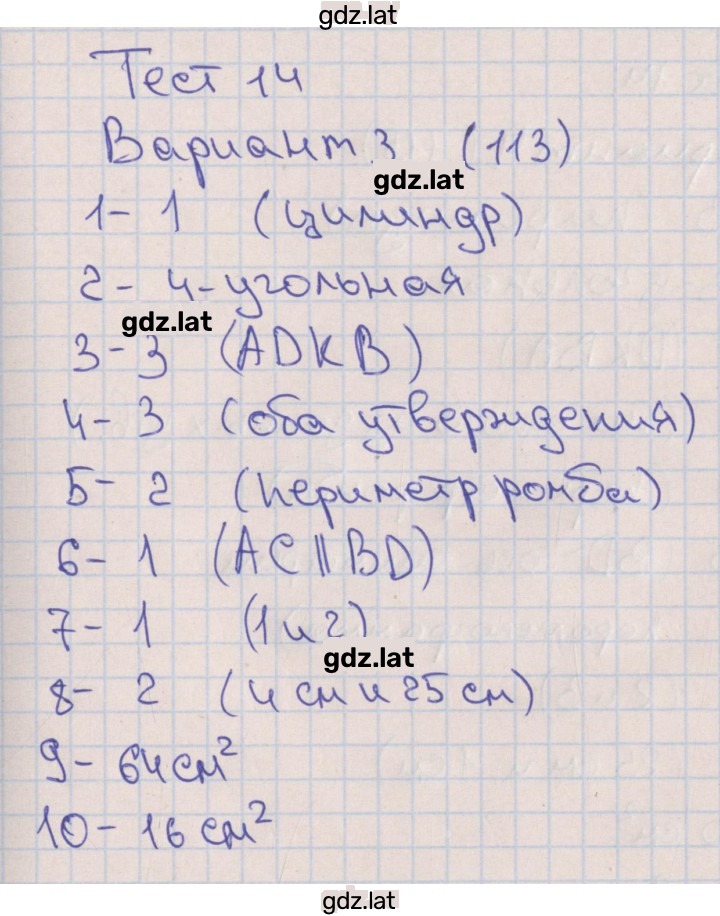 gdz.lat
Тест 14
Вариант 3 (113)
gdz.lat
1- 1 (цилиндр)
2- 4-угольная
gdz.lat
3-3 (ADKB)
4-3 (оба утверждения)
5- 2 (периметр ромба)
6- 1 (AC||BD)
7- 1 (1 и 2)
gdz.lat
8- 2 (4 см и 25 см)
9- 64 см²
10- 16 см²
gdz.lat